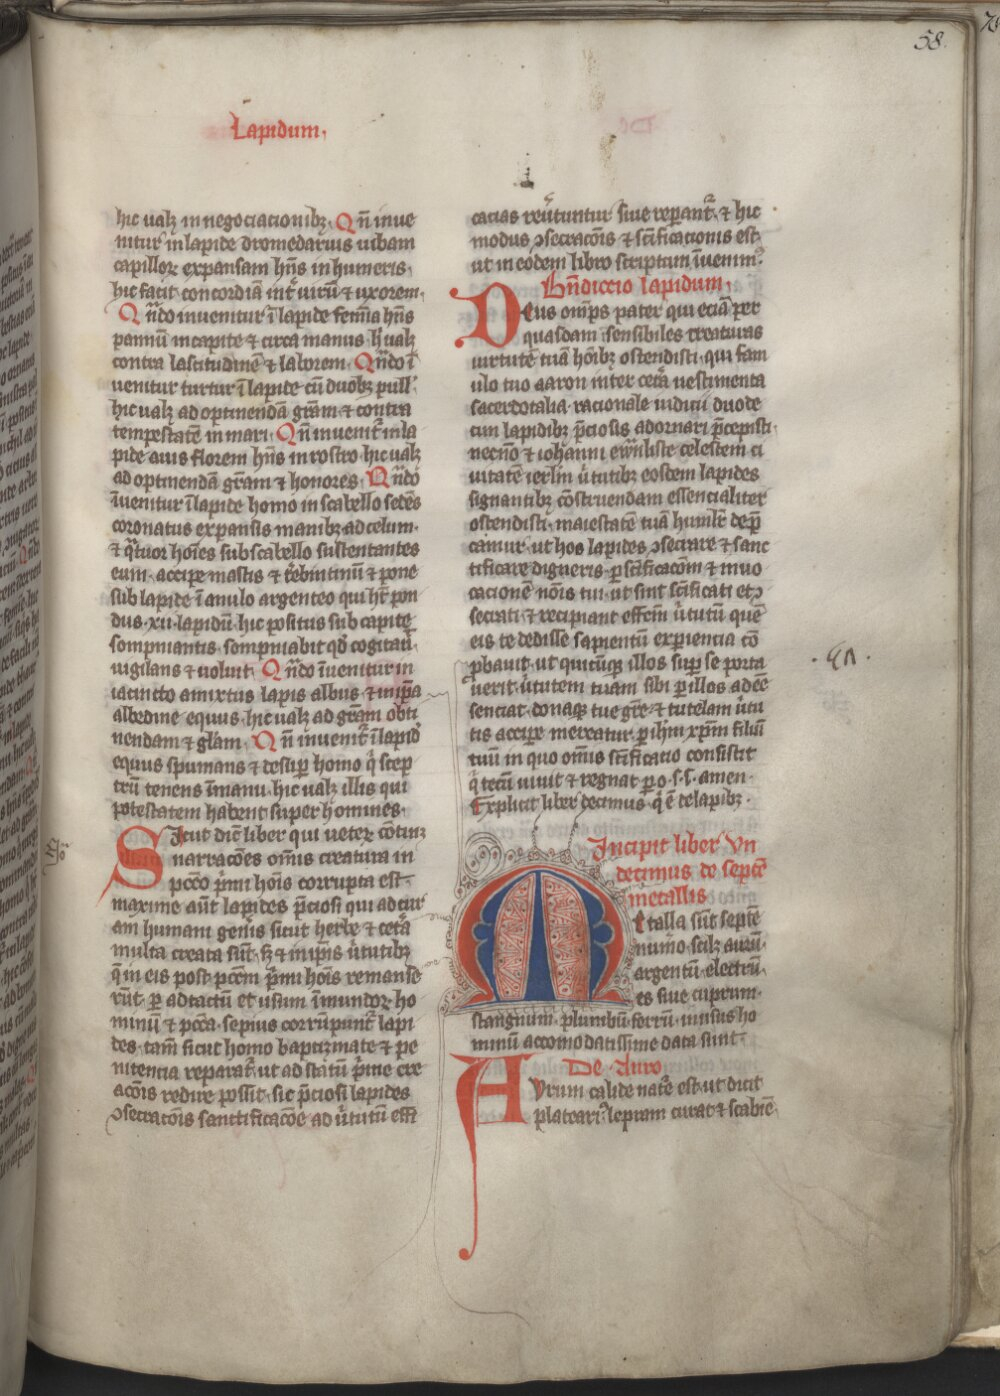 58.
Lapidum.
hic ualꝫ in negociacionibꝫ. Qn̄ inue
nitur in lapide dromedarius uibam
capilloꝝ expansam hn̄s in humeris.
hic facit concordiā int̄ uirū ⁊ uxorem.
Qn̄do inuenitur ī lapide femīa hn̄s
pannū in capite ⁊ circa manus hͥ ualꝫ
contra lassitudinē ⁊ laborem. Qn̄do ī
uenitur turtur ī lapide cū duobꝫ pull
hic ualꝫ ad optinendā grām ⁊ contra
tempestatē in mari. Qn̄ inuenit̄ in la
pide auis florem hn̄s in rostro hic ualꝫ
ad optinendā grām ⁊ honores. Qn̄do
īuenitur ī lapide homo in scabello sedēs
coronatus expansis manibꝫ ad celum.
⁊ qͣtuor hoīes sub scabello sustentantes
eum. accipe mastis ⁊ t̄ebintinū ⁊ pone
sub lapide ī anulo argenteo qui hꝫ pon
dus .xii. lapidū. hic positus sub capite
sompniantis. sompniabit qͩ cogitaū
uigilans ⁊ uoluit. Qn̄do īuenitur in
iacincto amixtus lapis albus ⁊ in ip̄a
albedine equus. hic ualꝫ ad grām obti
nendam ⁊ glām. Qn̄ inuenit̄ ī lapid̄
equus spumans ⁊ desuꝑ homo qͥ scep
trū tenens ī manu. hic ualꝫ illis qui
potestatem habent super homines.
Sicut dic̄ liber qui ueteꝝ cōtinꝫ
narracōes om̄is creatura in
pccō pͥmi hoīs corrupta est.
maxime aūt lapides p̄ciosi qui ad cur
am humani gen̄is sicut herbe ⁊ cet̄a
multa creata sūt. sꝫ ⁊ in ip̄is uͥtutibꝫ
q̄ in eis post pccm̄ pͥmi hoīs remanse
rūt. ꝑ ad tactū et usum īmundoꝝ ho
minū ⁊ pccā. sepius corrūpunt̄ lapi
des. tam̄ sicut homo baptizmate ⁊ pe
nitencia reparat̄. ut ad statū pͥme cre
acōis redire possit. sic p̄ciosi lapides
ↄsecratōis sanctificacōe ad uͥtutū effi
cacias reūtuntur siue reperant̄. ⁊ hic
modus ↄsecracōis ⁊ sc̄ificacionis est
ut in eodem libro scriptum īuenim᷒.
Bn̄diccio lapidum.
Deus om̄ps pater qui eciā per
quasdam sensibiles creaturas
uirtutē tuā hoībꝫ ostendisti. qui fam
ulo tuo aaron inter cet̄a uestimenta
sacerdotalia. racionale iudicii duode
cim lapidibꝫ p̄ciosis adornari p̄cepisti
necnō ⁊ iohanni ewāliste celestem ci
uitatē ierlm̄ uͥtutibꝫ eosdem lapides
signantibꝫ cōstruendam essencialiter
ostendisti. maiestatē tuā humilr̄ dep̄
camur. ut hos lapides ↄsecrare ⁊ sanc
tificare digneris. ꝑ sc̄ificacōm ⁊ inuo
cacionē nōis tui. ut sint sc̄ificati et ↄ
secrati. ⁊ recipiant effcm̄ uͥtutū quē
eis te dedisse sapientū experiencia cō
ꝓbauit. ut quicūqꝫ illos suꝑ se porta
uerit. uͥtutem tuam sibi ꝑ illos adeē
senciat. donaqꝫ tue grē. ⁊ tutelam uͥtu
tis accipe mereatur. ꝑ ihm̄ xp̄m filiū
tuū in quo om̄is sc̄ificatio consistit
qͥ tecū uiuit ⁊ regnat ꝑ .o. s. s. amen.
Explicit liber decimus. qͥ ē de lapibꝫ.
Incipit liber Vn
decimus de septē
metallis
Metalla sūt septē
numͦo scilꝫ aurū.
argentū. electrū.
es siue cuprum.
stangnum. plumbū. ferrū. in usus ho
minū accomodatissime data sunt.
De Auro
Aurum calide nat̄e est. ut dicit
plateari᷒. lepram curat ⁊ scabiē